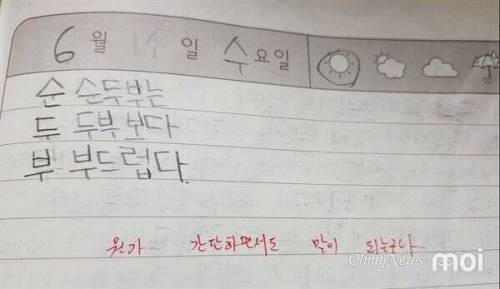 6월 14일 수요일
순 순두부는
두 두부보다
부 부드럽다.
뭔가 간단하면서도 말이 되는구나.
OhmyNews
moi